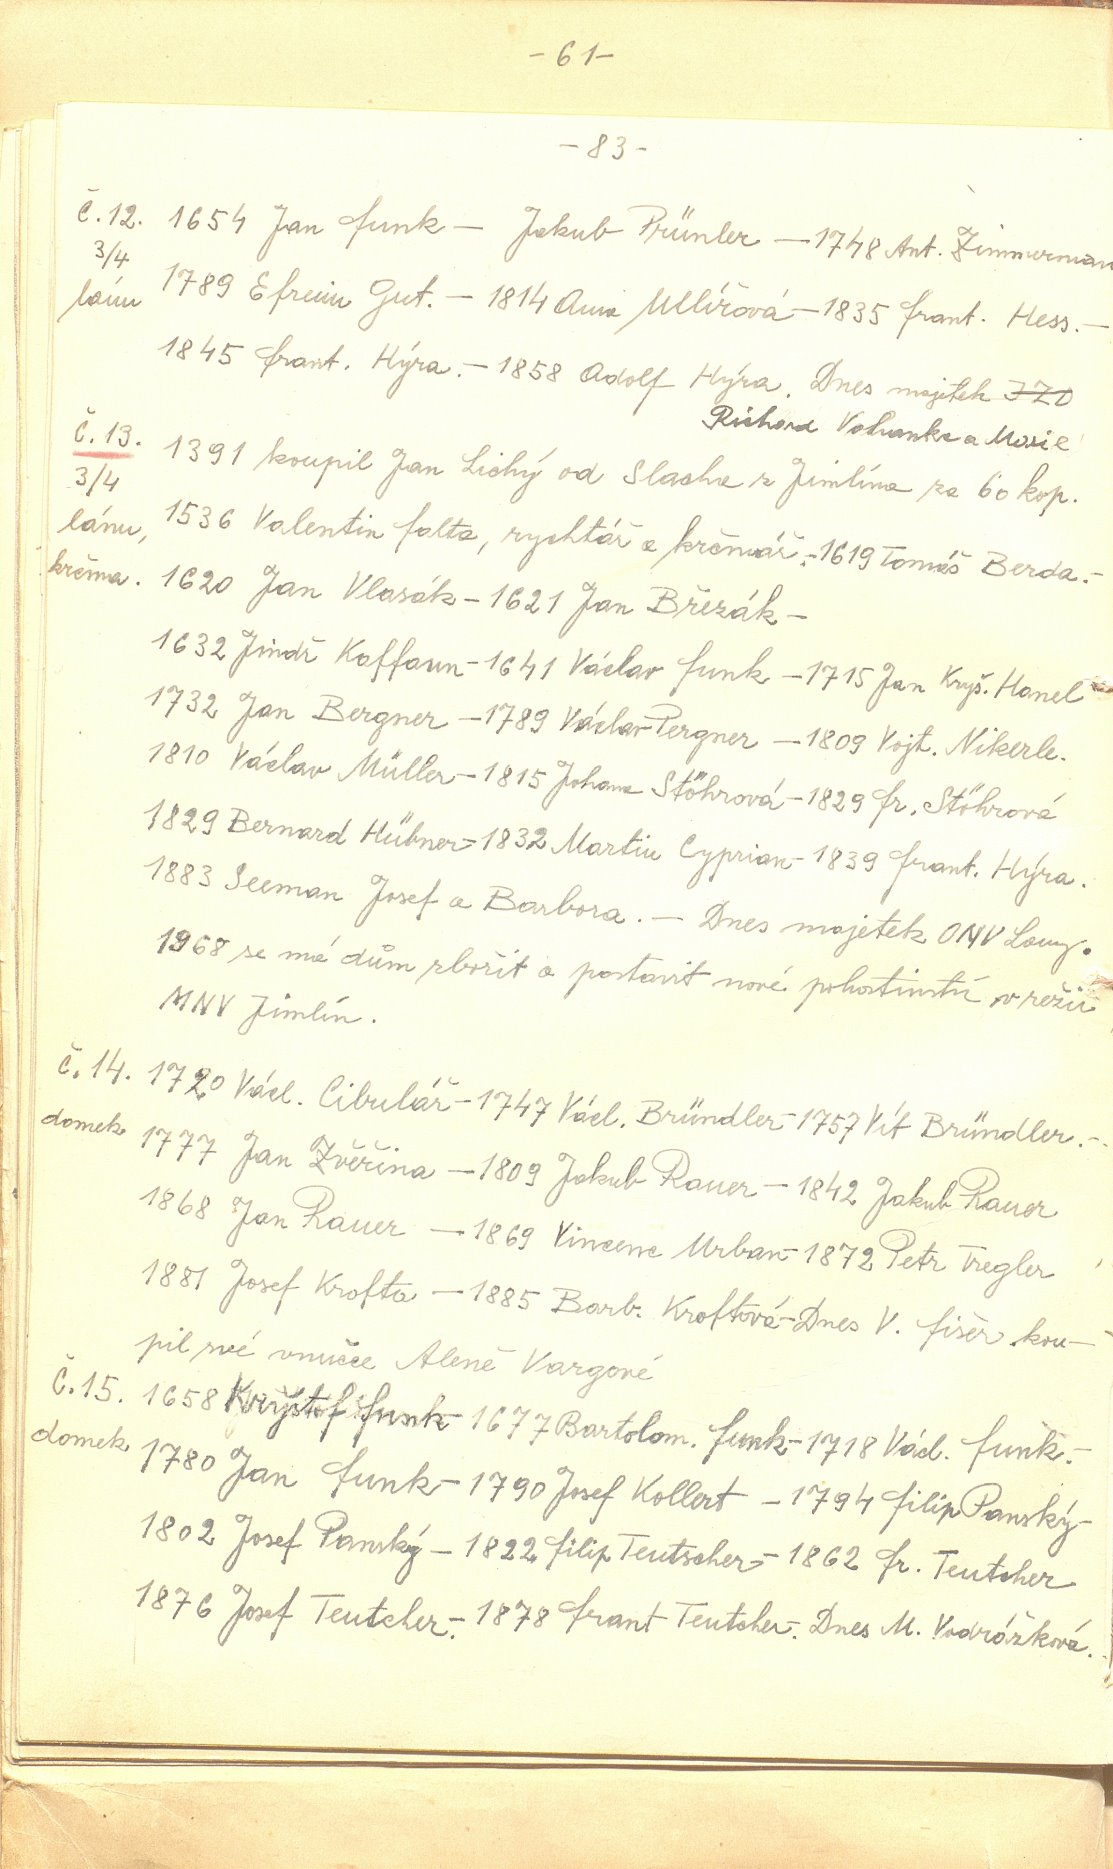 - 61 -
- 83 -
č. 12. 1654 Jan Funk — Jakub Prünler — 1748 Ant. Zimmerman
3/4
lánu 1789 Efreim Gut. — 1814 Anna Ullířová — 1835 Frant. Hess. —
1845 Frant. Hýra. — 1858 Adolf Hýra. Dnes majetek JZD
Richard Vohanka a Marie
č. 13. 1391 koupil Jan Lichý od Slacha z Jimlína za 60 kop.
3/4
lánu, 1536 Valentin Falta, rychtář a krčmář. — 1619 Tomáš Berda. —
krčma. 1620 Jan Vlasák — 1621 Jan Březák —
1632 Jindř Kaffaun — 1641 Václav Funk — 1715 Jan Kryš. Hanel
1732 Jan Bergner — 1789 Václav Pergner — 1809 Vojt. Nikerle.
1810 Václav Müller — 1815 Johana Stöhrová — 1829 Fr. Stöhrová
1829 Bernard Hübner — 1832 Martin Cyprian — 1839 Frant. Hýra.
1883 Seeman Josef a Barbora. — Dnes majetek ONV Louny.
1968 se má dům zbořit a postavit nové pohostinství v režii
MNV Jimlín.
č. 14. 1720 Václ. Cibulář — 1747 Václ. Bründler — 1757 Vít Bründler. —
domek 1777 Jan Zvěřina — 1809 Jakub Rauer — 1842 Jakub Rauer
1868 Jan Rauer — 1869 Vincenc Urban — 1872 Petr Tregler
1881 Josef Krofta — 1885 Barb. Kroftová — Dnes V. Fišer kou—
pil své vnučce Aleně Vargové
č. 15. 1658 Kryštof Funk — 1677 Bartolom. Funk — 1718 Václ. Funk. —
domek 1780 Jan Funk — 1790 Josef Kollert — 1794 Filip Panský —
1802 Josef Panský — 1822 Filip Teutscher — 1862 Fr. Teutcher
1876 Josef Teutcher. — 1878 Frant Teutcher. — Dnes M. Vodrážková.